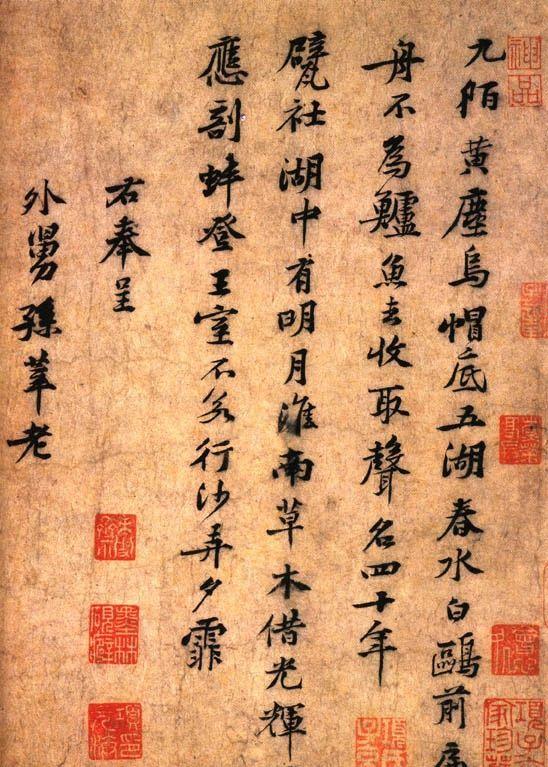 神品
九陌黃塵烏帽底五湖春水白鷗前
舟不為鱸魚去收取聲名四十年
甓社湖中有明月淮南草木借光輝
應剖蚌登王室不若行沙弄夕霏
右奉呈
外舅孫莘老